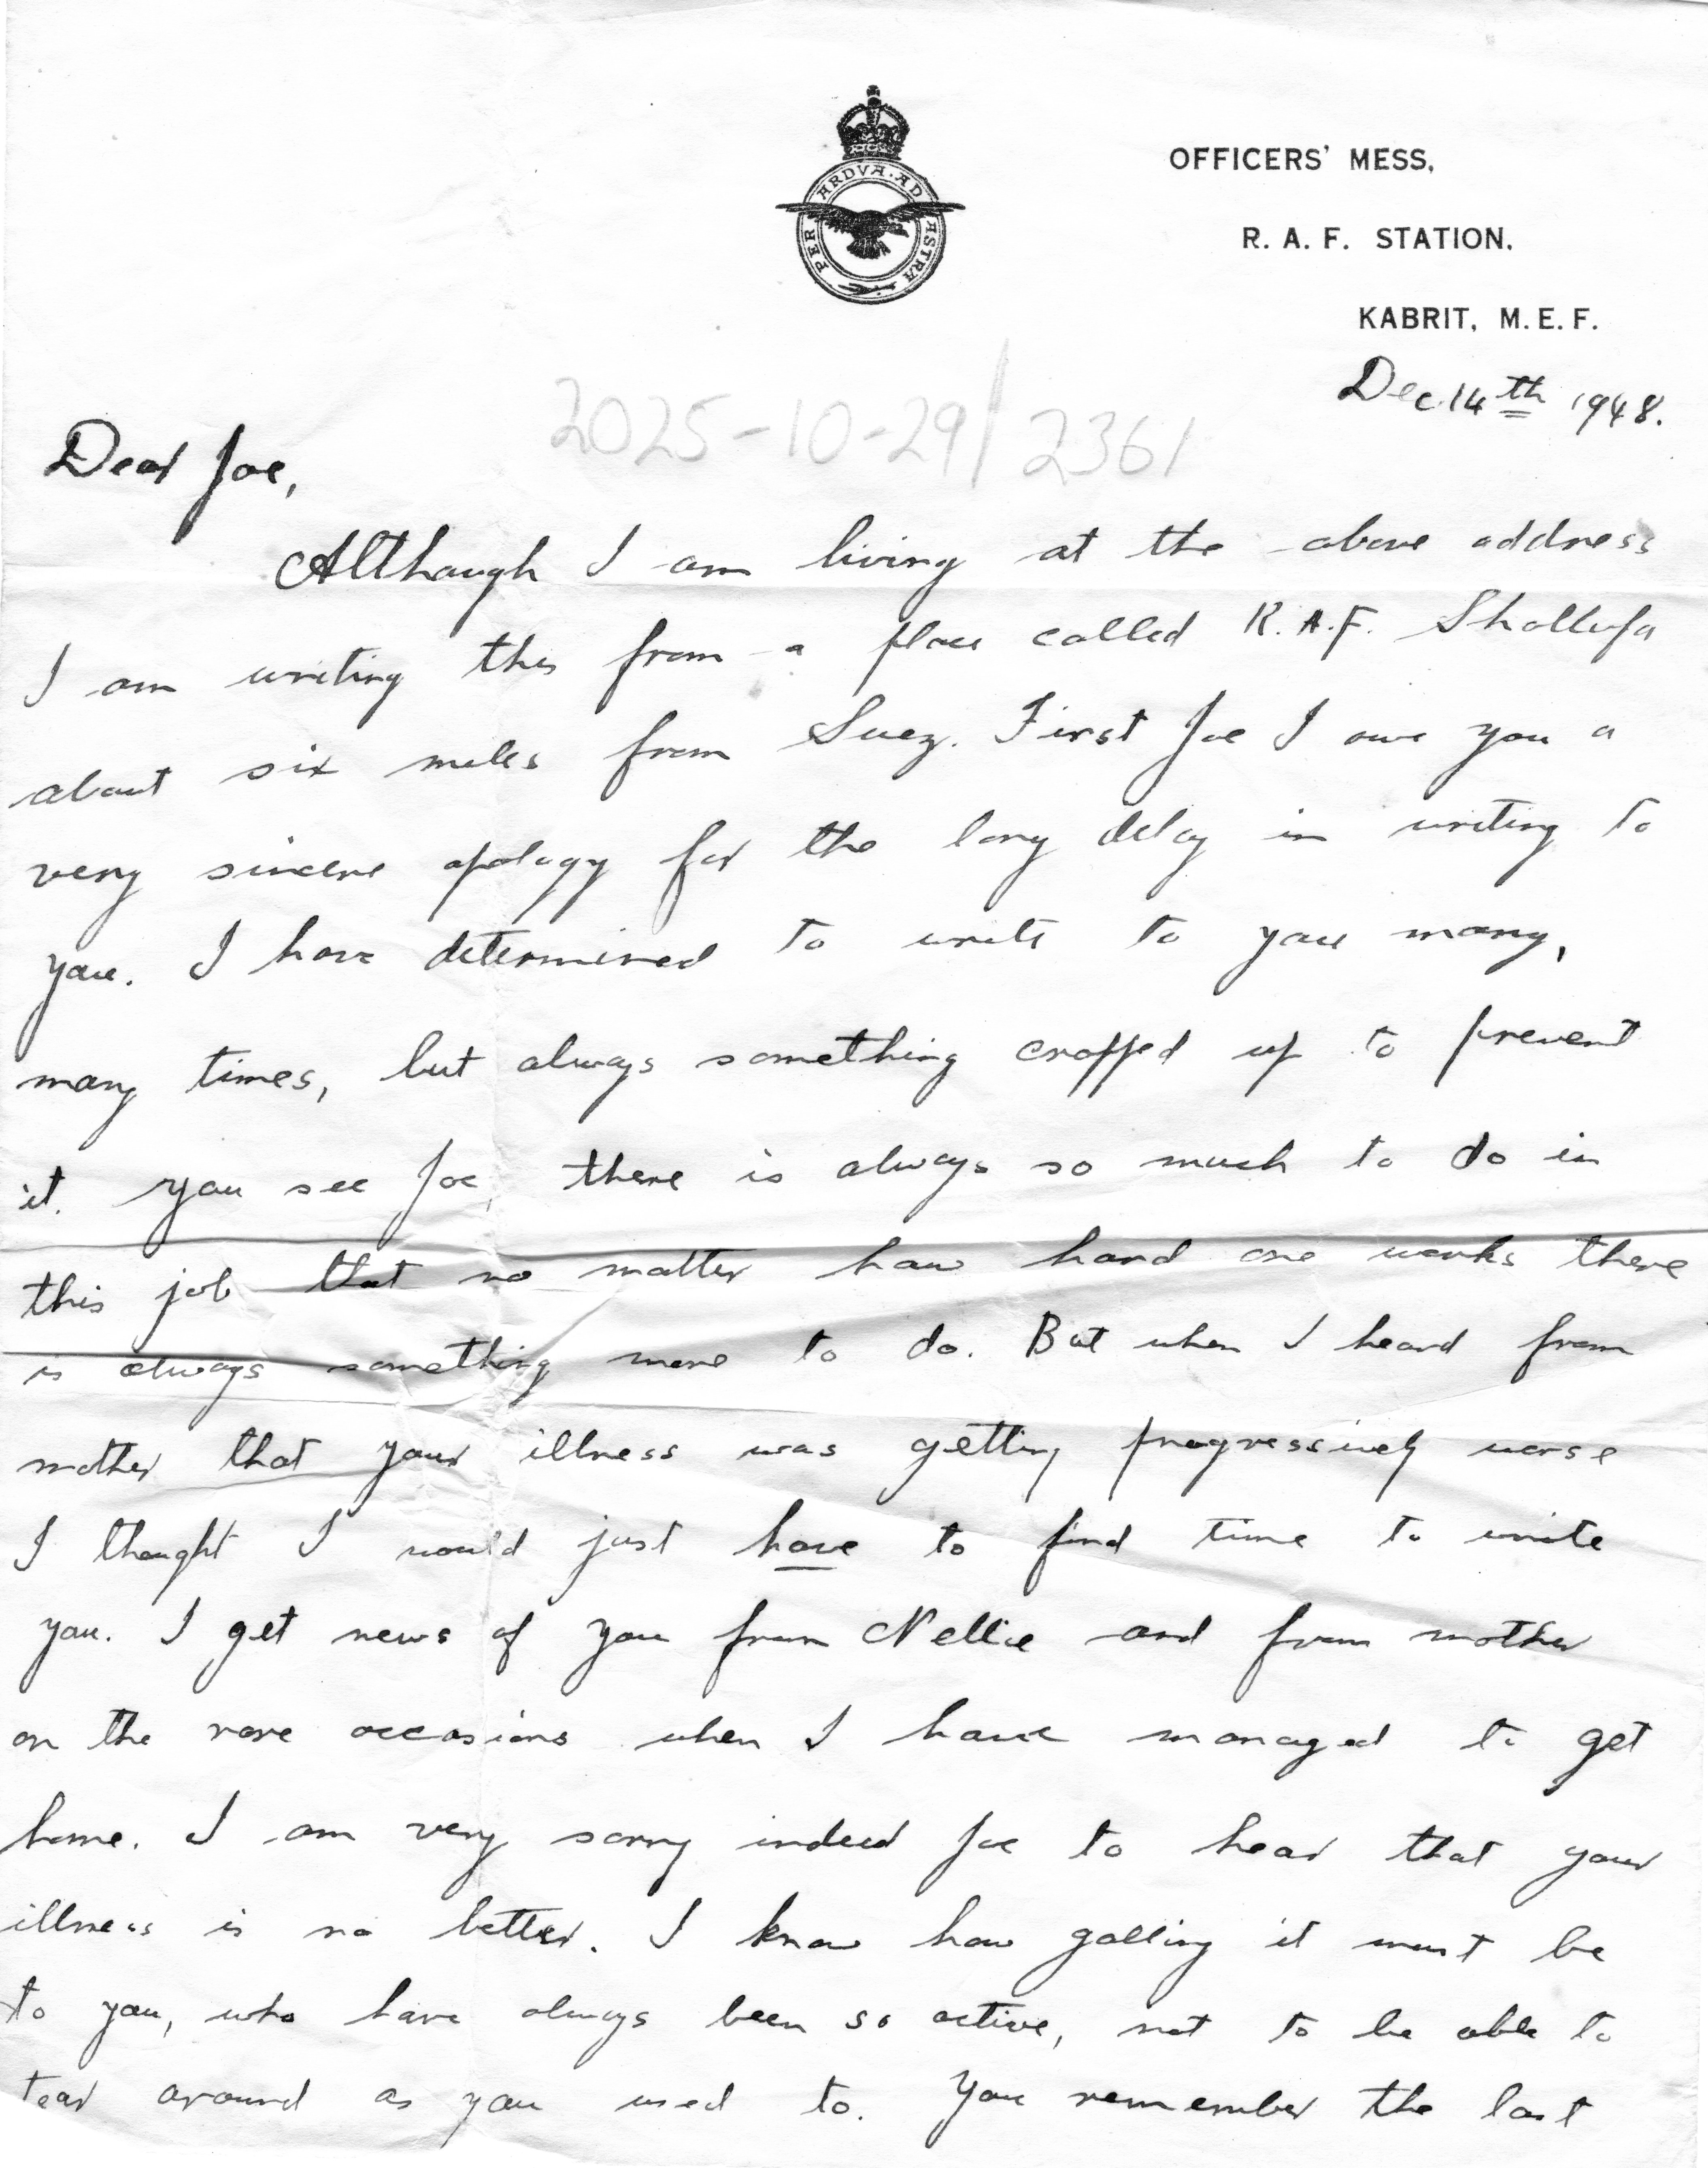 PER ARDVA AD ASTRA
OFFICERS' MESS,
R. A. F. STATION,
KABRIT, M. E. F.
Dec 14th 1948.
2025-10-29/2361
Dear Joe,
Although I am living at the above address
I am writing this from a place called R.A.F. Shallufa
about six miles from Suez. First Joe I owe you a
very sincere apology for the long delay in writing to
you. I have determined to write to you many,
many times, but always something cropped up to prevent
it. You see Joe, there is always so much to do in
this job that no matter how hard one works there
is always something more to do. But when I heard from
mother that your illness was getting progressively worse
I thought I would just have to find time to write
you. I get news of you from Nellie and from mother
on the rare occasions when I have managed to get
home. I am very sorry indeed Joe to hear that your
illness is no better. I know how galling it must be
to you, who have always been so active, not to be able to
tear around as you used to. You remember the last